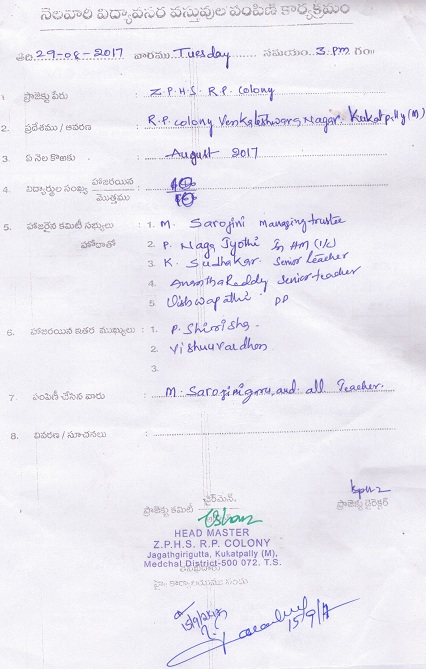 నెలవారి విద్యావసర వస్తువుల పంపిణి కార్యక్రమం
తేది 29-08-2017 వారము Tuesday సమయం 3 PM గం॥
1. ప్రాజెక్టు పేరు : Z.P.H.S. R.P. Colony
2. ప్రదేశము / ఆవరణ : R.P. Colony Venkateshwara Nagar. Kukatpally (M)
3. ఏ నెల కొఱకు : August 2017
4. విద్యార్థుల సంఖ్య హాజరయిన
మొత్తము
5. హాజరైన కమిటీ సభ్యులు : 1. M. Sarojini Managing trustee
హోదాతో 2. P. Naga Jyothi In HM (I/C)
3. K. Sudhakar. Senior teacher
4. Anantha Reddy Senior teacher
5 Vishwapathi PD
6. హాజరయిన ఇతర ముఖ్యులు : 1. P. Shirisha -
2. Vishnuvardhan
3.
7. పంపిణీ చేసిన వారు : M. Sarojini garu, and all Teacher.
8. వివరణ / సూచనలు :
ఛైర్మెన్.
ప్రాజెక్టు కమిటీ
ప్రాజెక్టు డైరెక్టర్
HEAD MASTER
Z.P.H.S. R.P. COLONY
Jagathgirigutta, Kukatpally (M),
Medchal District-500 072. T.S.
15/9/2017
15/9/17